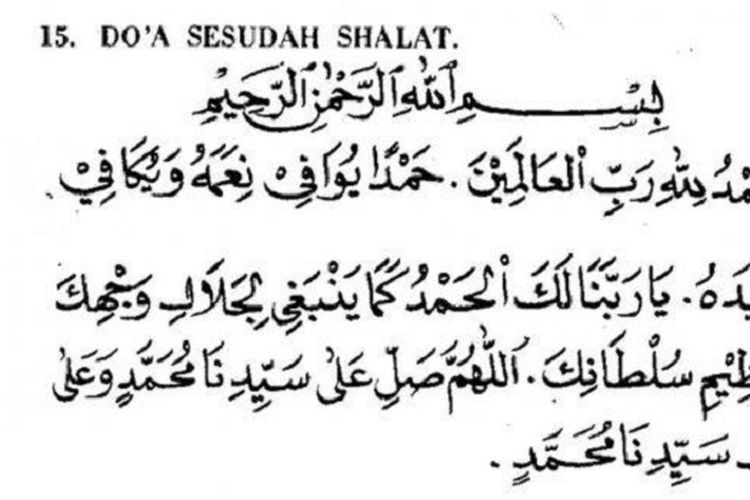 15. DO'A SESUDAH SHALAT.
بِسْمِ اللهِ الرَّحْمٰنِ الرَّحِيْمِ
مْدُ لِلّٰهِ رَبِّ الْعَالَمِيْنَ . حَمْدًا يُوَافِيْ نِعَمَهُ وَيُكَافِيْ
يْدَهُ . يَا رَبَّنَا لَكَ الْحَمْدُ كَمَا يَنْبَغِي لِجَلَالِ وَجْهِكَ
ظِيْمِ سُلْطَانِكَ . اَللّٰهُمَّ صَلِّ عَلٰى سَيِّدِنَا مُحَمَّدٍ وَعَلٰى
سَيِّدِنَا مُحَمَّدٍ .